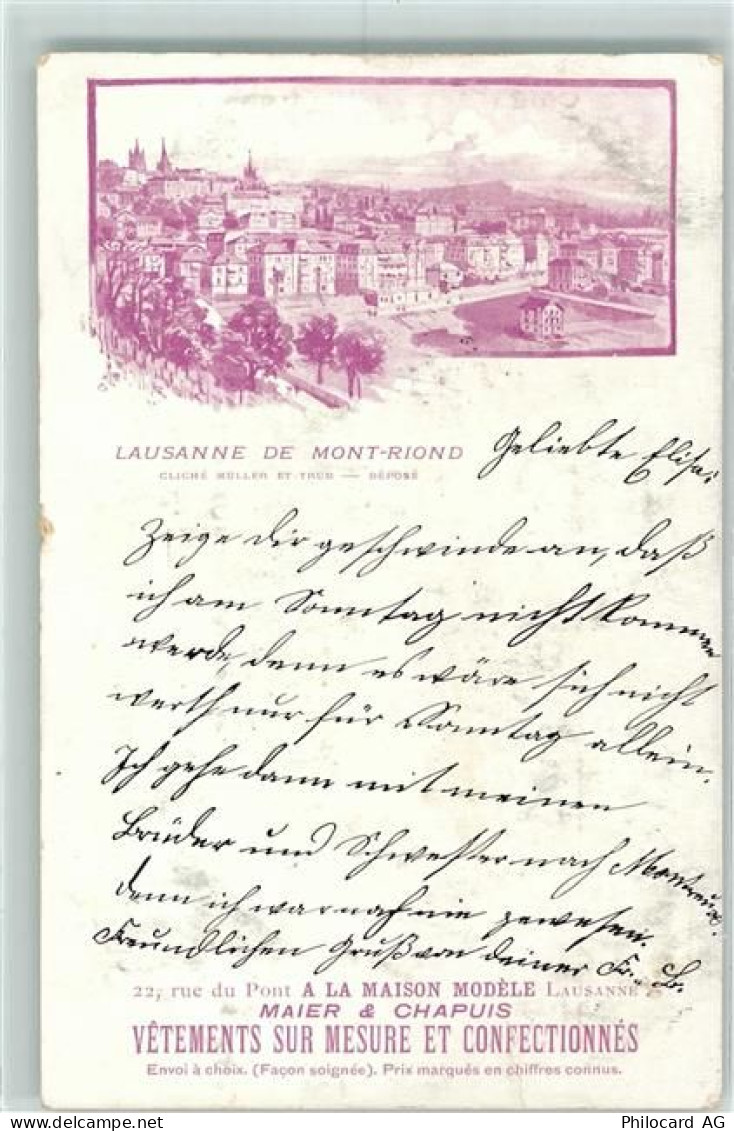 LAUSANNE DE MONT-RIOND
CLICHÉ MÜLLER ET TRÜB — DÉPOSÉ
Geliebte Elisa,
Zeige dir geschwinde an, daß
ich am Sonntag nicht kommen
werde, denn es wäre sich nicht
werth nur für Sonntag allein.
Ich gehe dann mit meinen
Brüder und Schwester nach Montreux,
denn ich war noch nie gewesen.
Freundlichen Gruß von deiner Fr. Br.
22, rue du Pont A LA MAISON MODÈLE LAUSANNE
MAIER & CHAPUIS
VÊTEMENTS SUR MESURE ET CONFECTIONNÉS
Envoi à choix. (Façon soignée). Prix marqués en chiffres connus.
Philocard AG